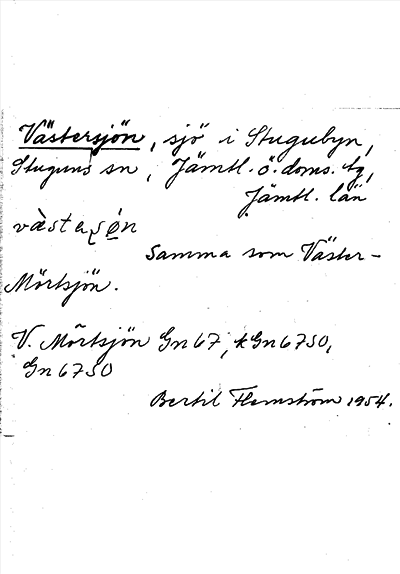 Västersjön, sjö i Stugubyn,
Stuguns sn, Jämtl. ö. doms. tg,
Jämtl. län
Samma som Väster-
Mörtsjön.
V. Mörtsjön Gn 67, kGn 67 SO,
Gn 67 SO
Bertil Flemström 1954.